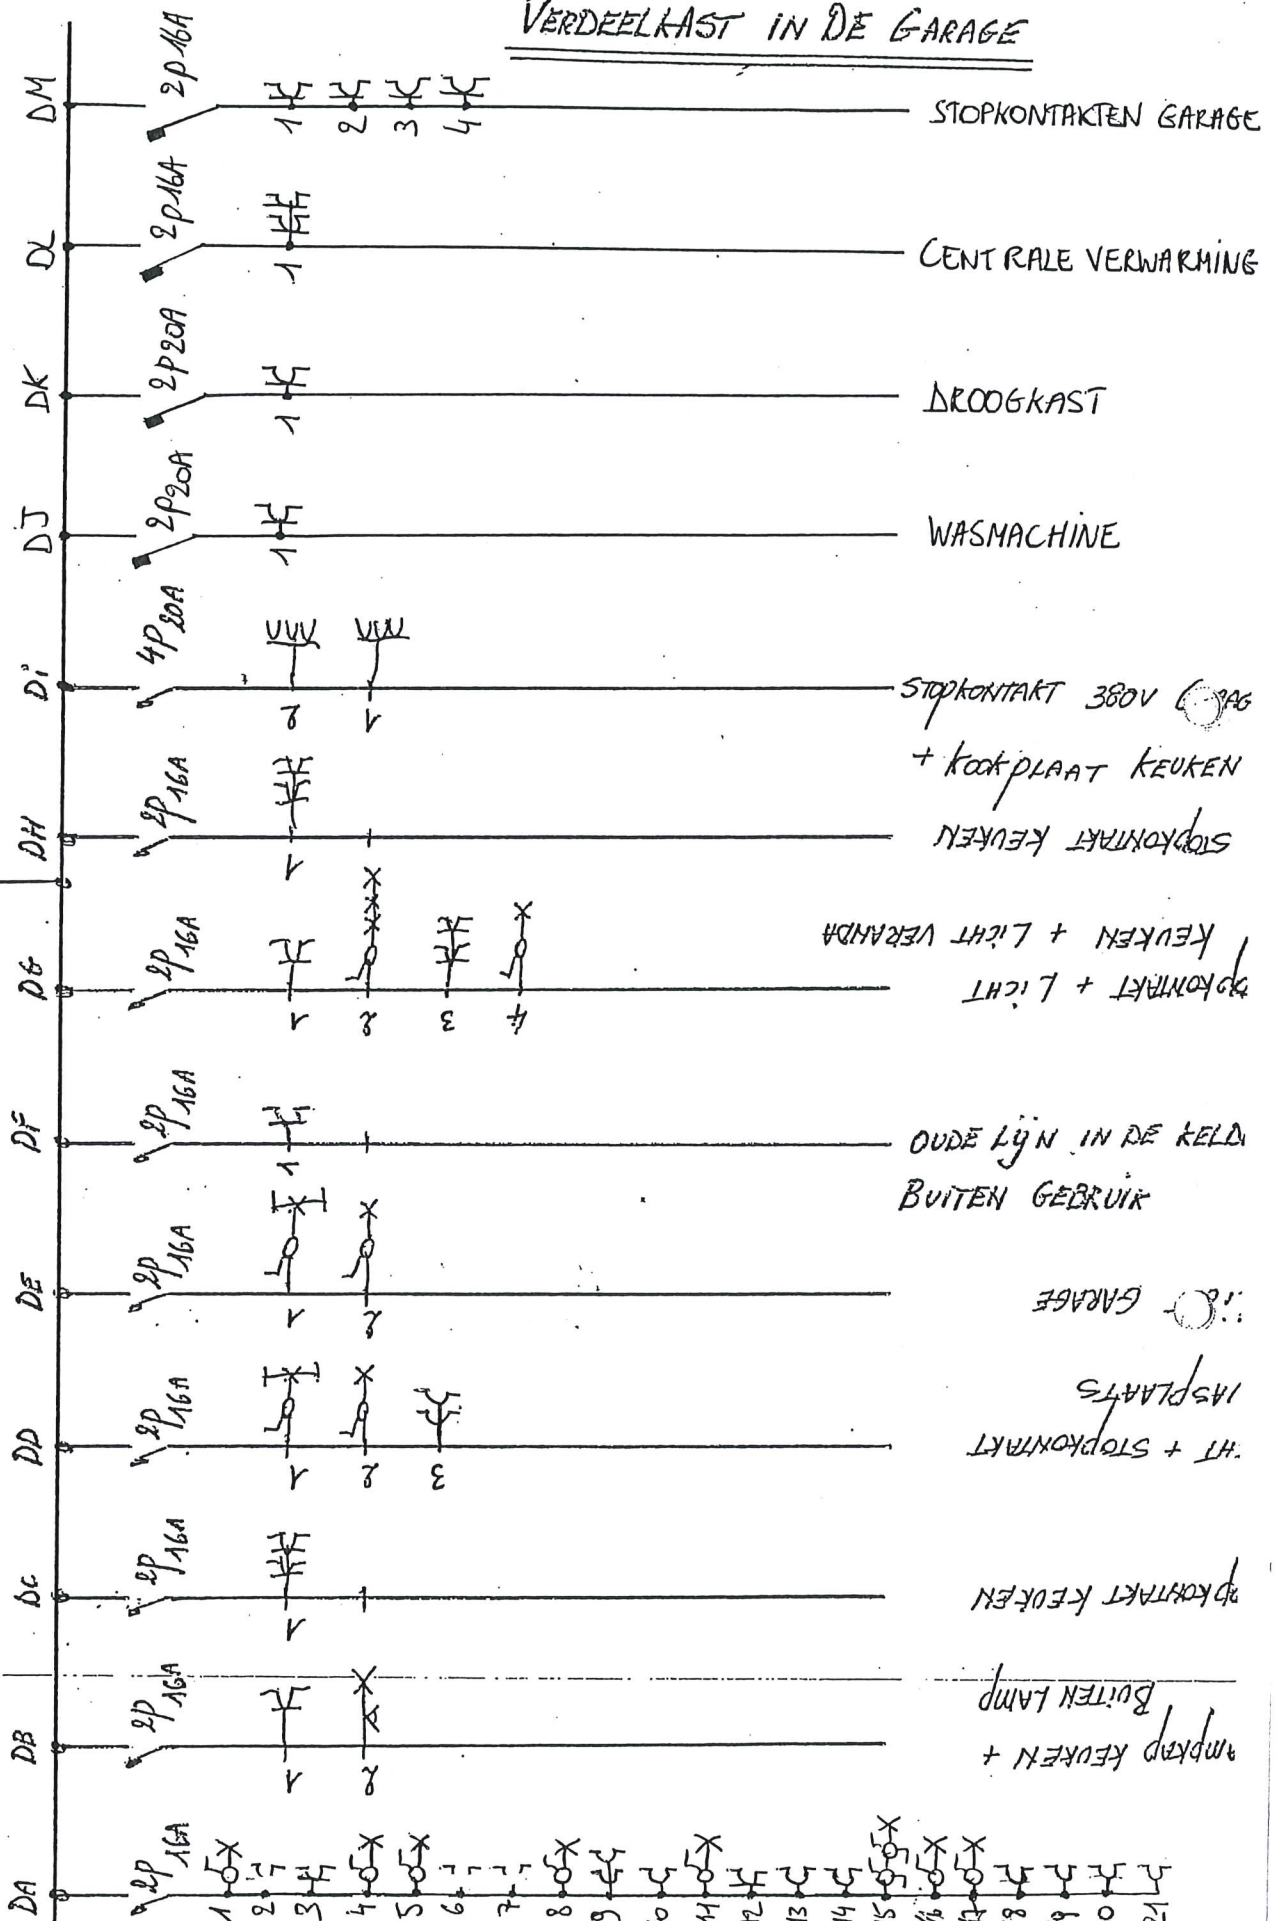 VERDEELKAST IN DE GARAGE
DM 2p16A 1 2 3 4 STOPKONTAKTEN GARAGE
DL 2p16A 1 CENTRALE VERWARMING
DK 2p20A 1 DROOGKAST
DJ 2p20A 1 WASMACHINE
Di 4p20A 2 1 STOPKONTAKT 380V
+ KOOKPLAAT KEUKEN
DH 2p16A 1 STOPKONTAKT KEUKEN
DG 2p16A 1 2 3 4 OPKONTAKT + LICHT
KEUKEN + LICHT VERANDA
DF 2p16A 1 OUDE LijN IN DE KELD
BUITEN GEBRUIK
DE 2p16A 1 2 GARAGE
DD 2p16A 1 2 3 HT + STOPKONTAKT
ASPLAATS
DC 2p16A 1 PKONTAKT KEUKEN
DB 2p16A 1 2 AMPKAP KEUKEN +
BUITEN LAMP
DA 2p16A 1 2 3 4 5 6 7 8 9 0 11 12 13 14 15 16 17 18 19 0 21